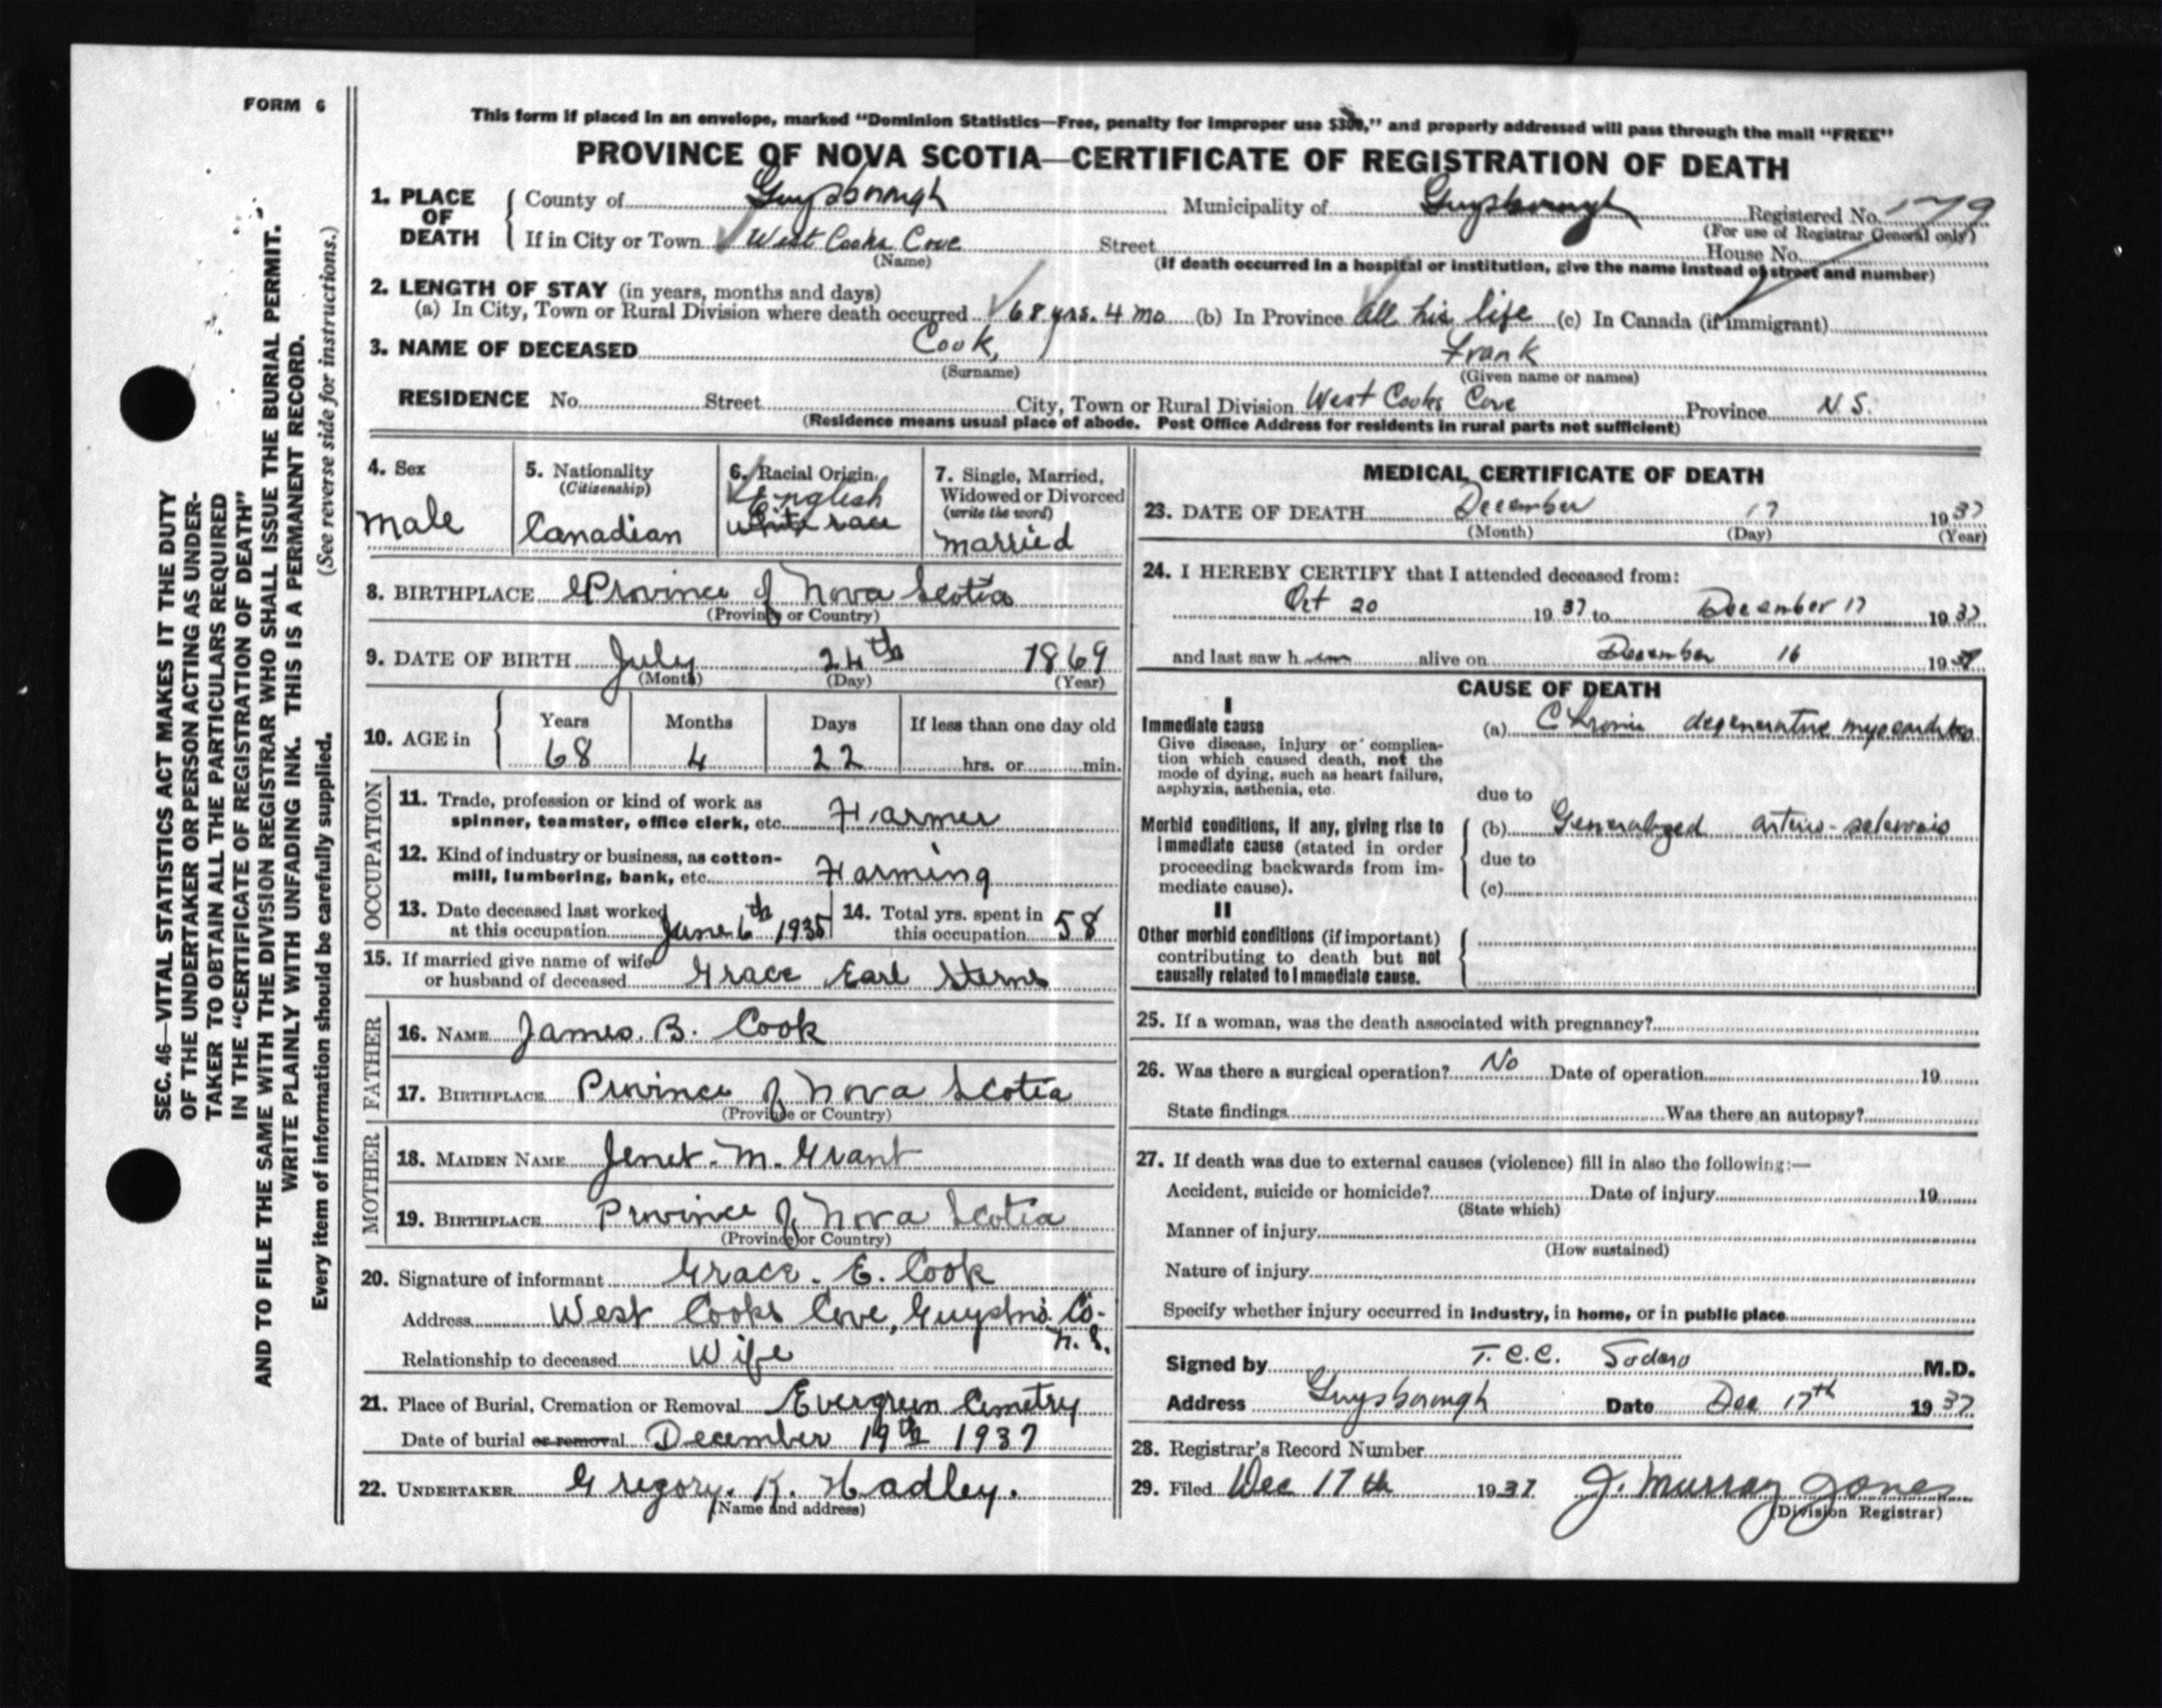 FORM 6
This form if placed in an envelope, marked "Dominion Statistics—Free, penalty for improper use $300," and properly addressed will pass through the mail "FREE"
PROVINCE OF NOVA SCOTIA—CERTIFICATE OF REGISTRATION OF DEATH
1. PLACE OF DEATH County of Guysborough Municipality of Guysborough Registered No. 179
(For use of Registrar General only)
If in City or Town West Cooks Cove Street House No.
(Name) (If death occurred in a hospital or institution, give the name instead of street and number)
2. LENGTH OF STAY (in years, months and days)
(a) In City, Town or Rural Division where death occurred 68 yrs. 4 mo (b) In Province All his life (c) In Canada (if immigrant)
3. NAME OF DECEASED Cook, Frank
(Surname) (Given name or names)
RESIDENCE No. Street City, Town or Rural Division West Cooks Cove Province N.S.
(Residence means usual place of abode. Post Office Address for residents in rural parts not sufficient)
4. Sex
male
5. Nationality
(Citizenship)
Canadian
6. Racial Origin.
English
white race
7. Single, Married,
Widowed or Divorced
(write the word)
married
8. BIRTHPLACE Province of Nova Scotia
(Province or Country)
9. DATE OF BIRTH July 24th 1869
(Month) (Day) (Year)
10. AGE in Years Months Days If less than one day old
68 4 22 hrs. or min.
OCCUPATION
11. Trade, profession or kind of work as
spinner, teamster, office clerk, etc. Farmer
12. Kind of industry or business, as cotton-
mill, lumbering, bank, etc. Farming
13. Date deceased last worked
at this occupation June 6th 1935
14. Total yrs. spent in
this occupation 58
15. If married give name of wife
or husband of deceased Grace Earl Sterns
FATHER
16. NAME James. B. Cook
17. BIRTHPLACE Province of Nova Scotia
(Province or Country)
MOTHER
18. MAIDEN NAME Jenet. M. Grant
19. BIRTHPLACE Province of Nova Scotia
(Province or Country)
20. Signature of informant Grace. E. Cook
Address West Cooks Cove, Guysbro. Co.
N.S.
Relationship to deceased Wife
21. Place of Burial, Cremation or Removal Evergreen Cemetry
Date of burial or removal December 19th 1937
22. UNDERTAKER Gregory. K. Hadley.
(Name and address)
MEDICAL CERTIFICATE OF DEATH
23. DATE OF DEATH December 17 1937
(Month) (Day) (Year)
24. I HEREBY CERTIFY that I attended deceased from:
Oct 20 1937 to December 17 1937
and last saw him alive on December 16 1937
CAUSE OF DEATH
I
Immediate cause
Give disease, injury or complica-
tion which caused death, not the
mode of dying, such as heart failure,
asphyxia, asthenia, etc.
(a) Chronic degenerative myocarditis
due to
Morbid conditions, if any, giving rise to
immediate cause (stated in order
proceeding backwards from im-
mediate cause).
(b) Generalized arterio-sclerosis
due to
(c)
II
Other morbid conditions (if important)
contributing to death but not
causally related to immediate cause.
25. If a woman, was the death associated with pregnancy?
26. Was there a surgical operation? No Date of operation 19
State findings Was there an autopsy?
27. If death was due to external causes (violence) fill in also the following:—
Accident, suicide or homicide? Date of injury 19
(State which)
Manner of injury
(How sustained)
Nature of injury
Specify whether injury occurred in industry, in home, or in public place
Signed by T.C.C. Sodero M.D.
Address Guysborough Date Dec 17th 1937
28. Registrar's Record Number
29. Filed Dec 17th 1937 J. Murray Jones
(Division Registrar)
SEC. 46—VITAL STATISTICS ACT MAKES IT THE DUTY
OF THE UNDERTAKER OR PERSON ACTING AS UNDER-
TAKER TO OBTAIN ALL THE PARTICULARS REQUIRED
IN THE "CERTIFICATE OF REGISTRATION OF DEATH"
AND TO FILE THE SAME WITH THE DIVISION REGISTRAR WHO SHALL ISSUE THE BURIAL PERMIT.
WRITE PLAINLY WITH UNFADING INK. THIS IS A PERMANENT RECORD.
Every item of information should be carefully supplied. (See reverse side for instructions.)